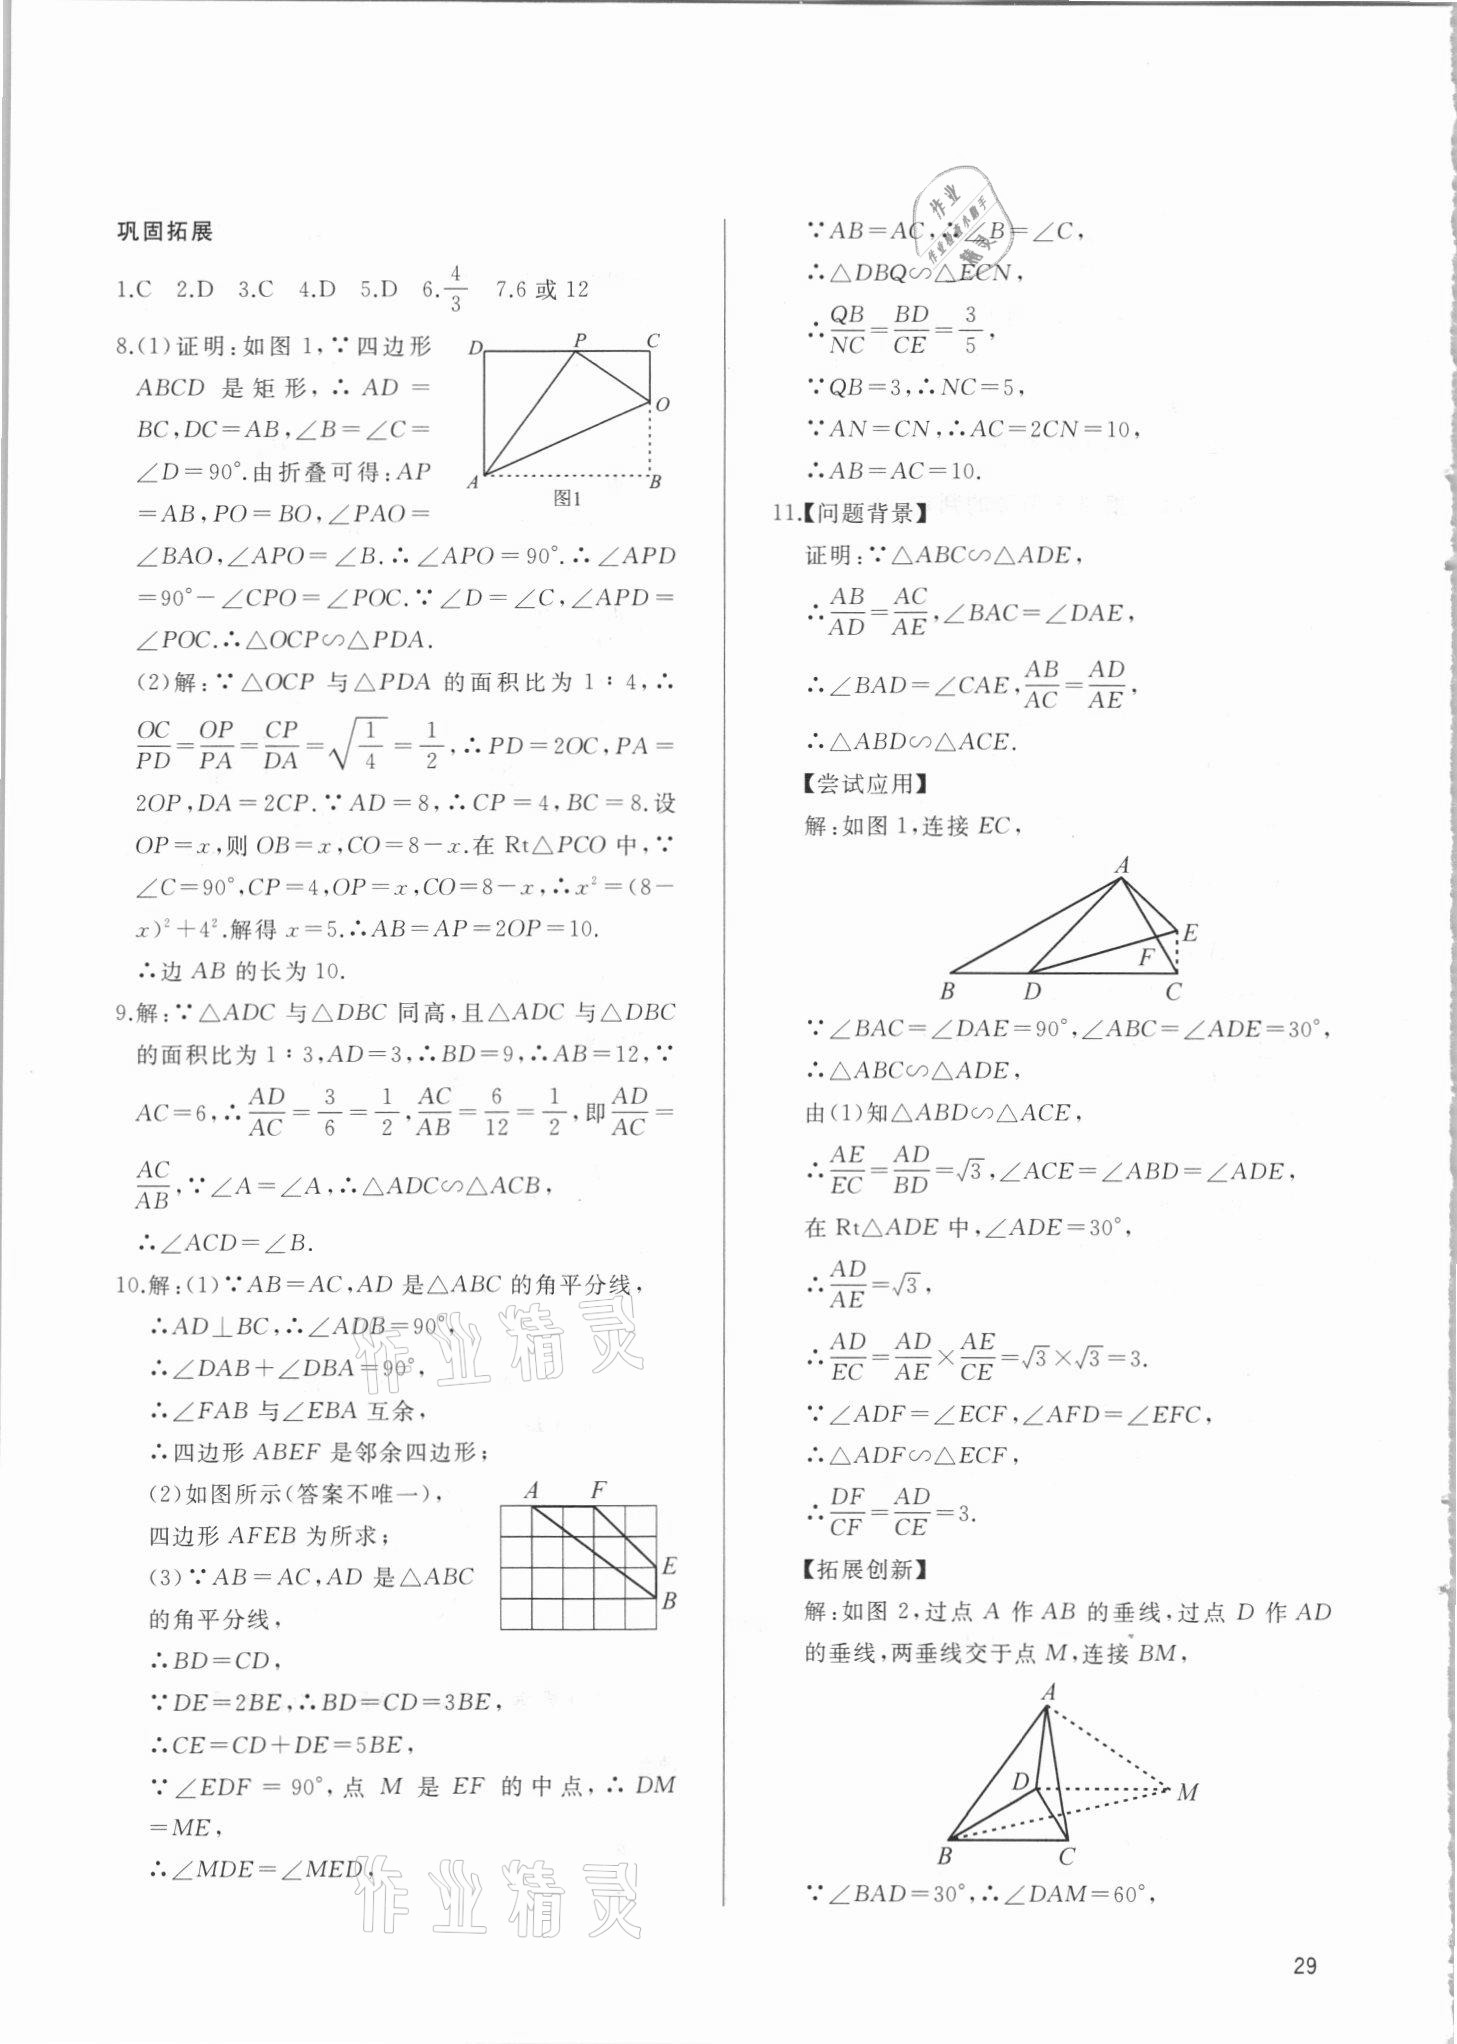 巩固拓展
1.C 2.D 3.C 4.D 5.D 6.4/3 7.6或12
8.(1)证明:如图1,∵四边形
ABCD是矩形,∴AD=
BC,DC=AB,∠B=∠C=
∠D=90°.由折叠可得:AP
=AB,PO=BO,∠PAO=
D P C O A B
图1
∠BAO,∠APO=∠B.∴∠APO=90°.∴∠APD
=90°-∠CPO=∠POC.∵∠D=∠C,∠APD=
∠POC.∴△OCP∽△PDA.
(2)解:∵△OCP与△PDA的面积比为1∶4,∴
OC/PD=OP/PA=CP/DA=√(1/4)=1/2,∴PD=2OC,PA=
2OP,DA=2CP.∵AD=8,∴CP=4,BC=8.设
OP=x,则OB=x,CO=8-x.在Rt△PCO中,∵
∠C=90°,CP=4,OP=x,CO=8-x,∴x²=(8-
x)²+4².解得x=5.∴AB=AP=2OP=10.
∴边AB的长为10.
9.解:∵△ADC与△DBC同高,且△ADC与△DBC
的面积比为1∶3,AD=3,∴BD=9,∴AB=12,∵
AC=6,∴AD/AC=3/6=1/2,AC/AB=6/12=1/2,即AD/AC=
AC/AB,∵∠A=∠A,∴△ADC∽△ACB,
∴∠ACD=∠B.
10.解:(1)∵AB=AC,AD是△ABC的角平分线,
∴AD⊥BC,∴∠ADB=90°,
∴∠DAB+∠DBA=90°,
∴∠FAB与∠EBA互余,
∴四边形ABEF是邻余四边形;
(2)如图所示(答案不唯一),
四边形AFEB为所求;
A F E B
(3)∵AB=AC,AD是△ABC
的角平分线,
∴BD=CD,
∵DE=2BE,∴BD=CD=3BE,
∴CE=CD+DE=5BE,
∵∠EDF=90°,点M是EF的中点,∴DM
=ME,
∴∠MDE=∠MED,
∵AB=AC,∴∠B=∠C,
∴△DBQ∽△ECN,
∴QB/NC=BD/CE=3/5,
∵QB=3,∴NC=5,
∵AN=CN,∴AC=2CN=10,
∴AB=AC=10.
11.【问题背景】
证明:∵△ABC∽△ADE,
∴AB/AD=AC/AE,∠BAC=∠DAE,
∴∠BAD=∠CAE,AB/AC=AD/AE,
∴△ABD∽△ACE.
【尝试应用】
解:如图1,连接EC,
A E F B D C
∵∠BAC=∠DAE=90°,∠ABC=∠ADE=30°,
∴△ABC∽△ADE,
由(1)知△ABD∽△ACE,
∴AE/EC=AD/BD=√3,∠ACE=∠ABD=∠ADE,
在Rt△ADE中,∠ADE=30°,
∴AD/AE=√3,
∴AD/EC=AD/AE×AE/CE=√3×√3=3.
∵∠ADF=∠ECF,∠AFD=∠EFC,
∴△ADF∽△ECF,
∴DF/CF=AD/CE=3.
【拓展创新】
解:如图2,过点A作AB的垂线,过点D作AD
的垂线,两垂线交于点M,连接BM,
A D M B C
∵∠BAD=30°,∴∠DAM=60°,
29
作业精灵
作业精灵
作业精灵